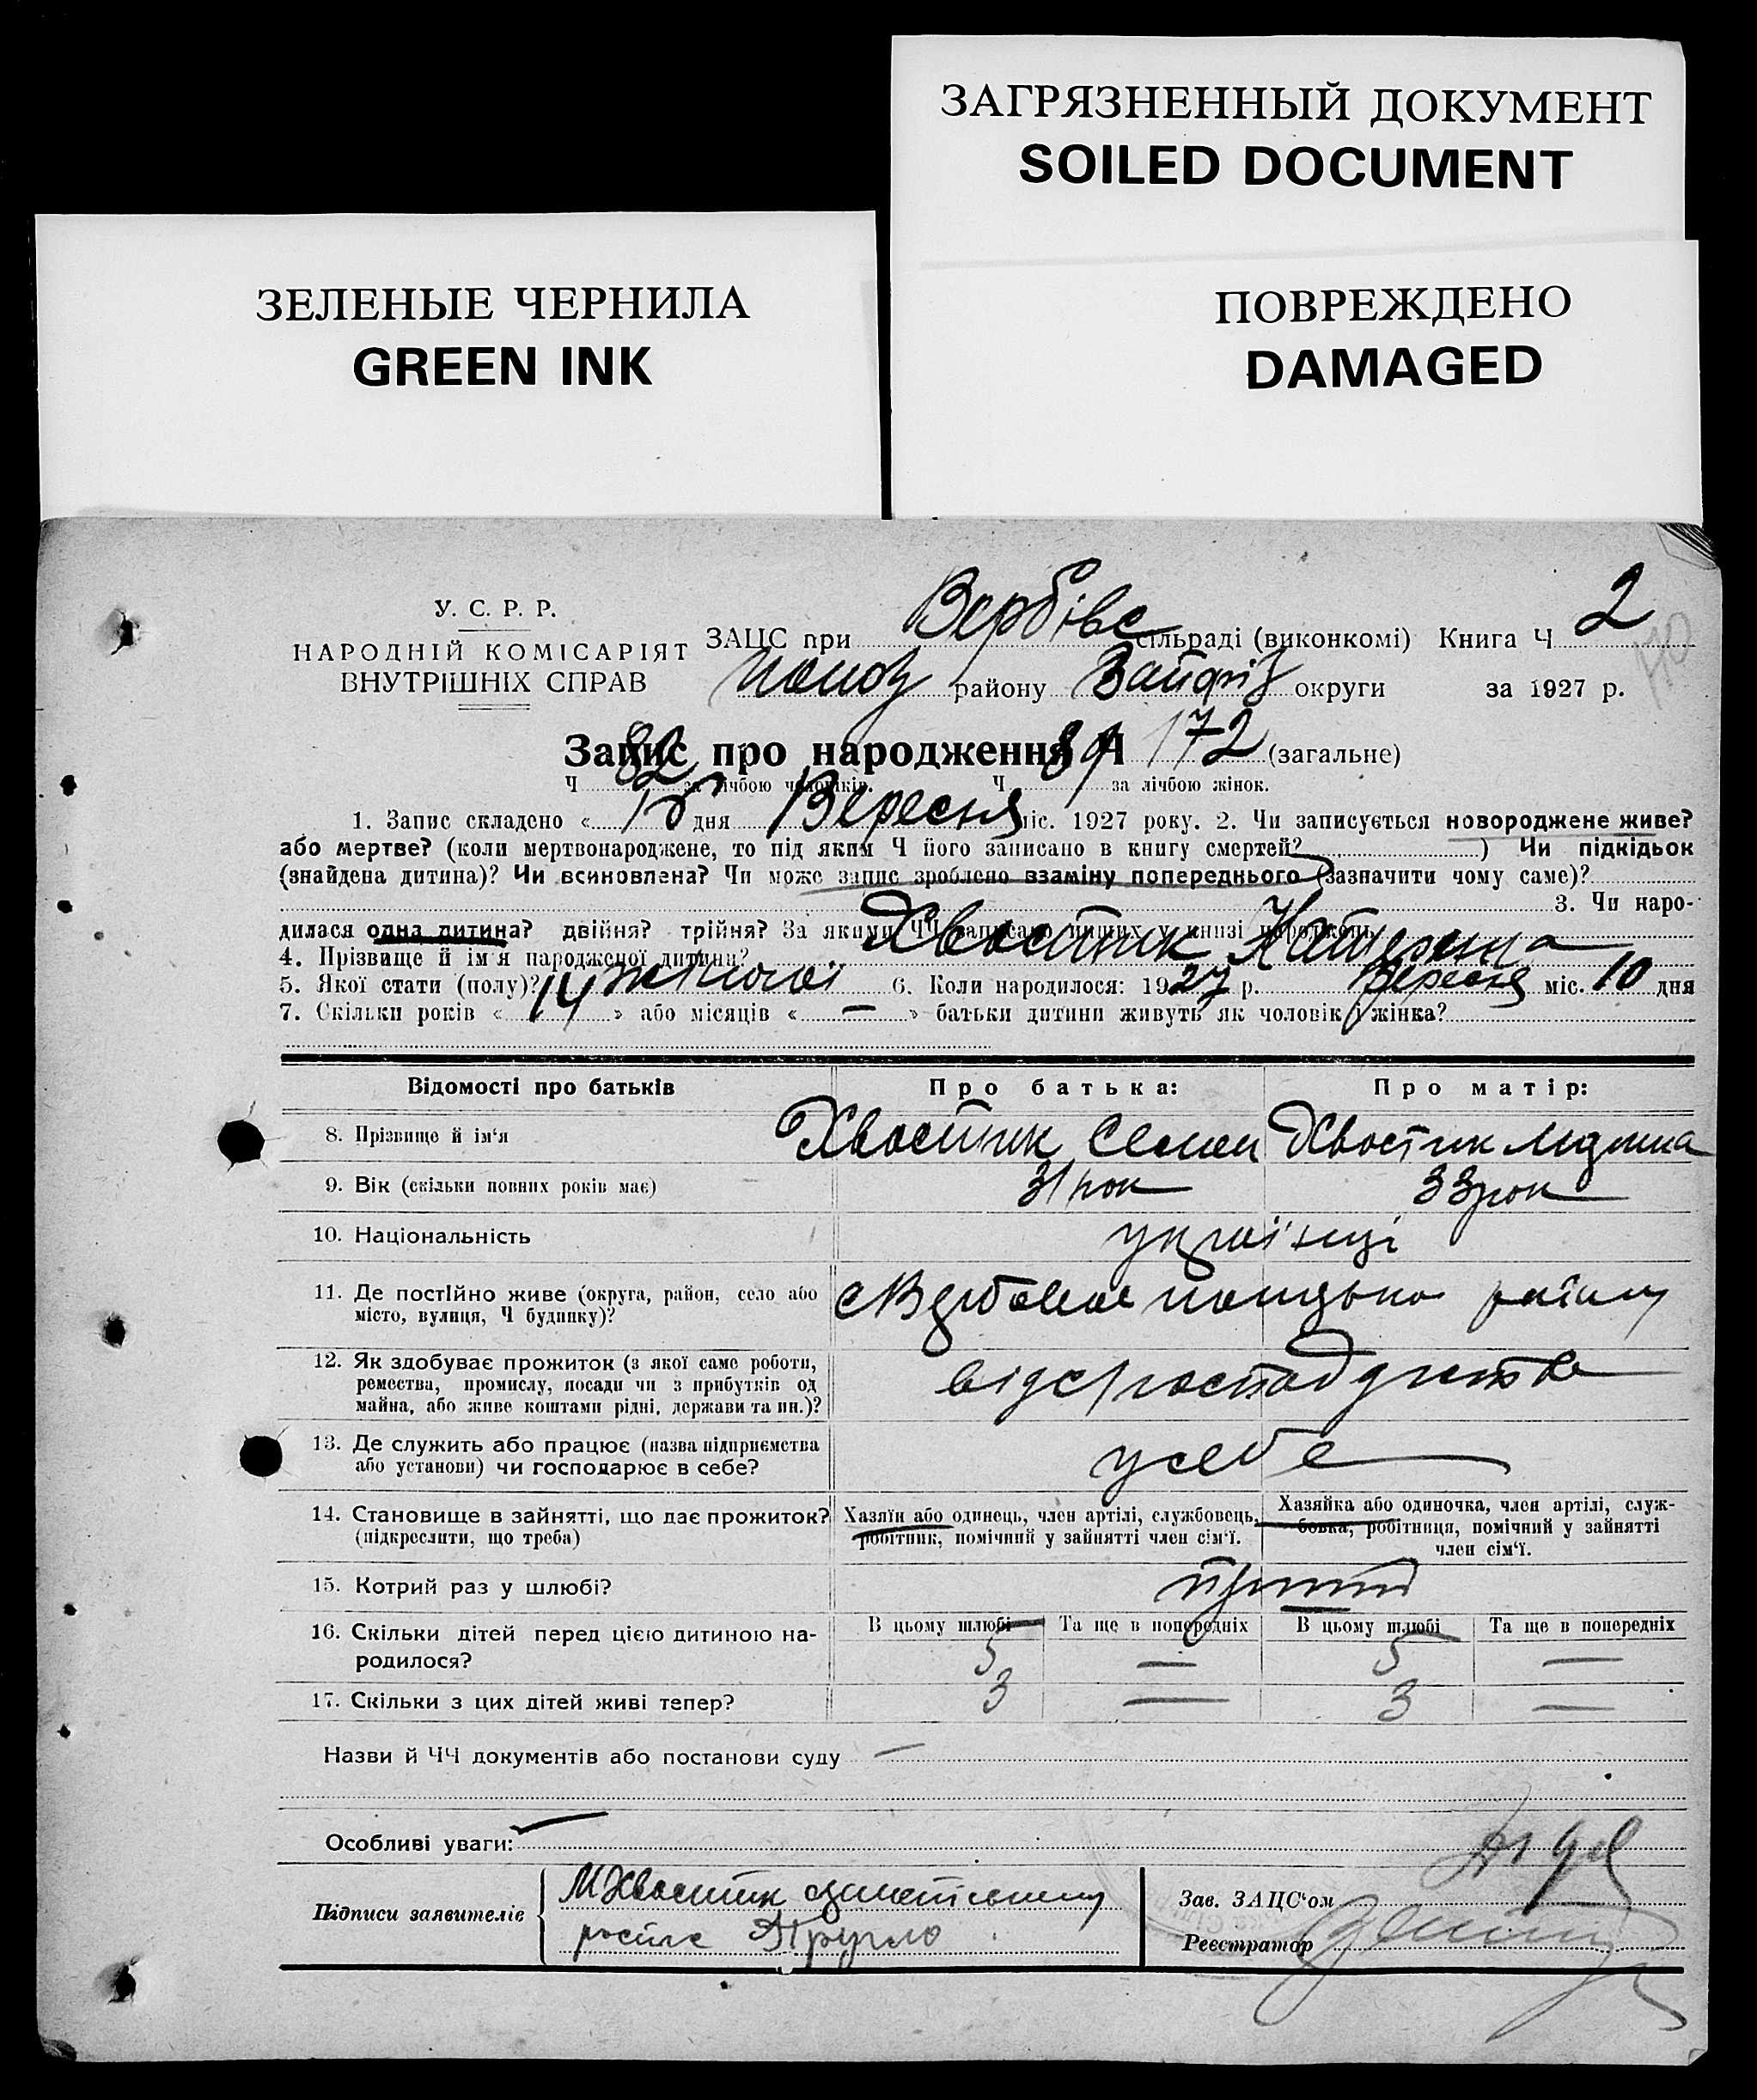 ЗАГРЯЗНЕННЫЙ ДОКУМЕНТ
SOILED DOCUMENT
ЗЕЛЕНЫЕ ЧЕРНИЛА
GREEN INK
ПОВРЕЖДЕНО
DAMAGED
У. С. Р. Р.
НАРОДНІЙ КОМІСАРІЯТ
ВНУТРІШНІХ СПРАВ
ЗАЦС при Вербівс сільраді (виконкомі) Книга Ч 2
району округи за 1927 р.
Запис про народження Ч 172 (загальне)
Ч 82 за лічбою чоловіків. Ч 89 за лічбою жінок.
1. Запис складено « дня Вересня міс. 1927 року. 2. Чи записується новороджене живе?
або мертве? (коли мертвонароджене, то під яким Ч його записано в книгу смертей? ) Чи підкідьок
(знайдена дитина)? Чи всиновлена? Чи може запис зроблено взаміну попереднього (зазначити чому саме)?
3. Чи наро-
дилася одна дитина? двійня? трійня? За якими ЧЧ записано инших у книзі народжень
4. Прізвище й ім'я народженої дитини? Хвостик Катерина
5. Якої стати (полу)? жіночої 6. Коли народилося: 1927 р. Вересня міс. 10 дня
7. Скільки років « 14 » або місяців « — » батьки дитини живуть як чоловік і жінка?
Відомості про батьків Про батька: Про матір:
8. Прізвище й ім'я Хвостик Семен Хвостик
9. Вік (скільки повних років має) 31 рок 33 рок
10. Національність українці
11. Де постійно живе (округа, район, село або
місто, вулиця, Ч будинку)? району
12. Як здобуває прожиток (з якої саме роботи,
ремества, промислу, посади чи з прибутків од
майна, або живе коштами рідні, держави та ин.)?
13. Де служить або працює (назва підприємства
або установи) чи господарює в себе? у себе
14. Становище в зайнятті, що дає прожиток?
(підкреслити, що треба)
Хазяїн або одинець, член артілі, службовець,
робітник, помічний у зайнятті член сім'ї.
Хазяйка або одиночка, член артілі, служ-
бовка, робітниця, помічний у зайнятті
член сім'ї.
15. Котрий раз у шлюбі?
16. Скільки дітей перед цією дитиною на-
родилося?
В цьому шлюбі Та ще в попередніх В цьому шлюбі Та ще в попередніх
5 — 5 —
17. Скільки з цих дітей живі тепер? 3 — 3 —
Назви й ЧЧ документів або постанови суду —
Особливі уваги:
Підписи заявителів
Хвостик
Зав. ЗАЦС'ом
Реєстратор